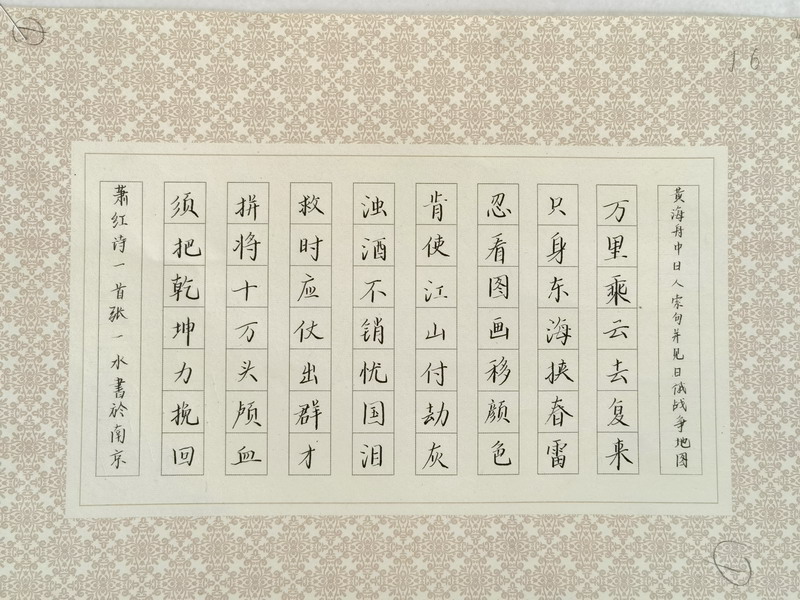 16
黄海舟中日人索句并见日俄战争地图
万里乘云去复来
只身东海挟春雷
忍看图画移颜色
肯使江山付劫灰
浊酒不销忧国泪
救时应仗出群才
拼将十万头颅血
须把乾坤力挽回
萧红诗一首张一水書於南京